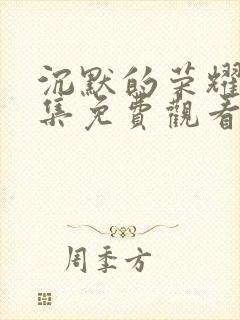 沉默的荣耀
集免費觀看
周季方